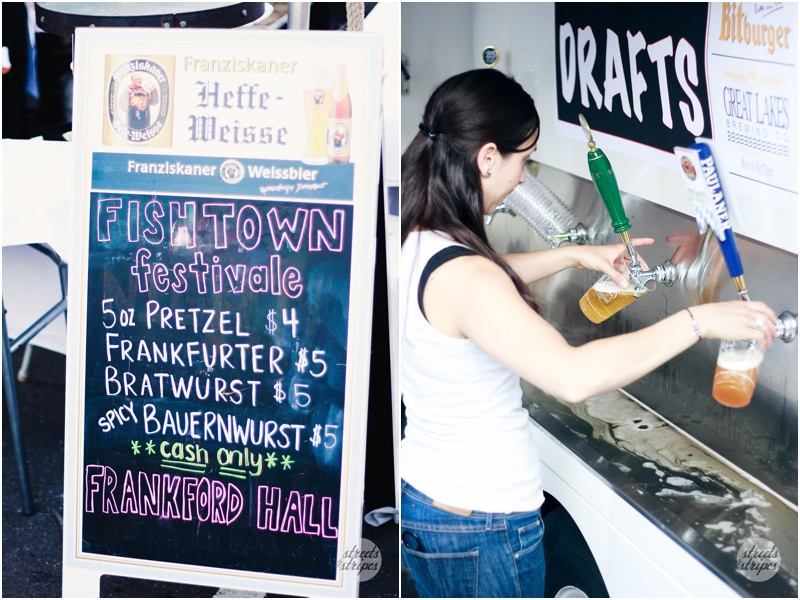 Franziskaner
Heffe-
Weisse
Franziskaner
Hefe-Weisse
Franziskaner Weissbier
FISHTOWN
festivale
5oz PRETZEL $4
FRANKFURTER $5
BRATWURST $5
SPICY BAUERNWURST $5
**cash only**
FRANKFORD HALL
streets
stripes
DRAFTS
Bitburger
GREAT LAKES
BREWING CO
PAULANER
streets
stripes